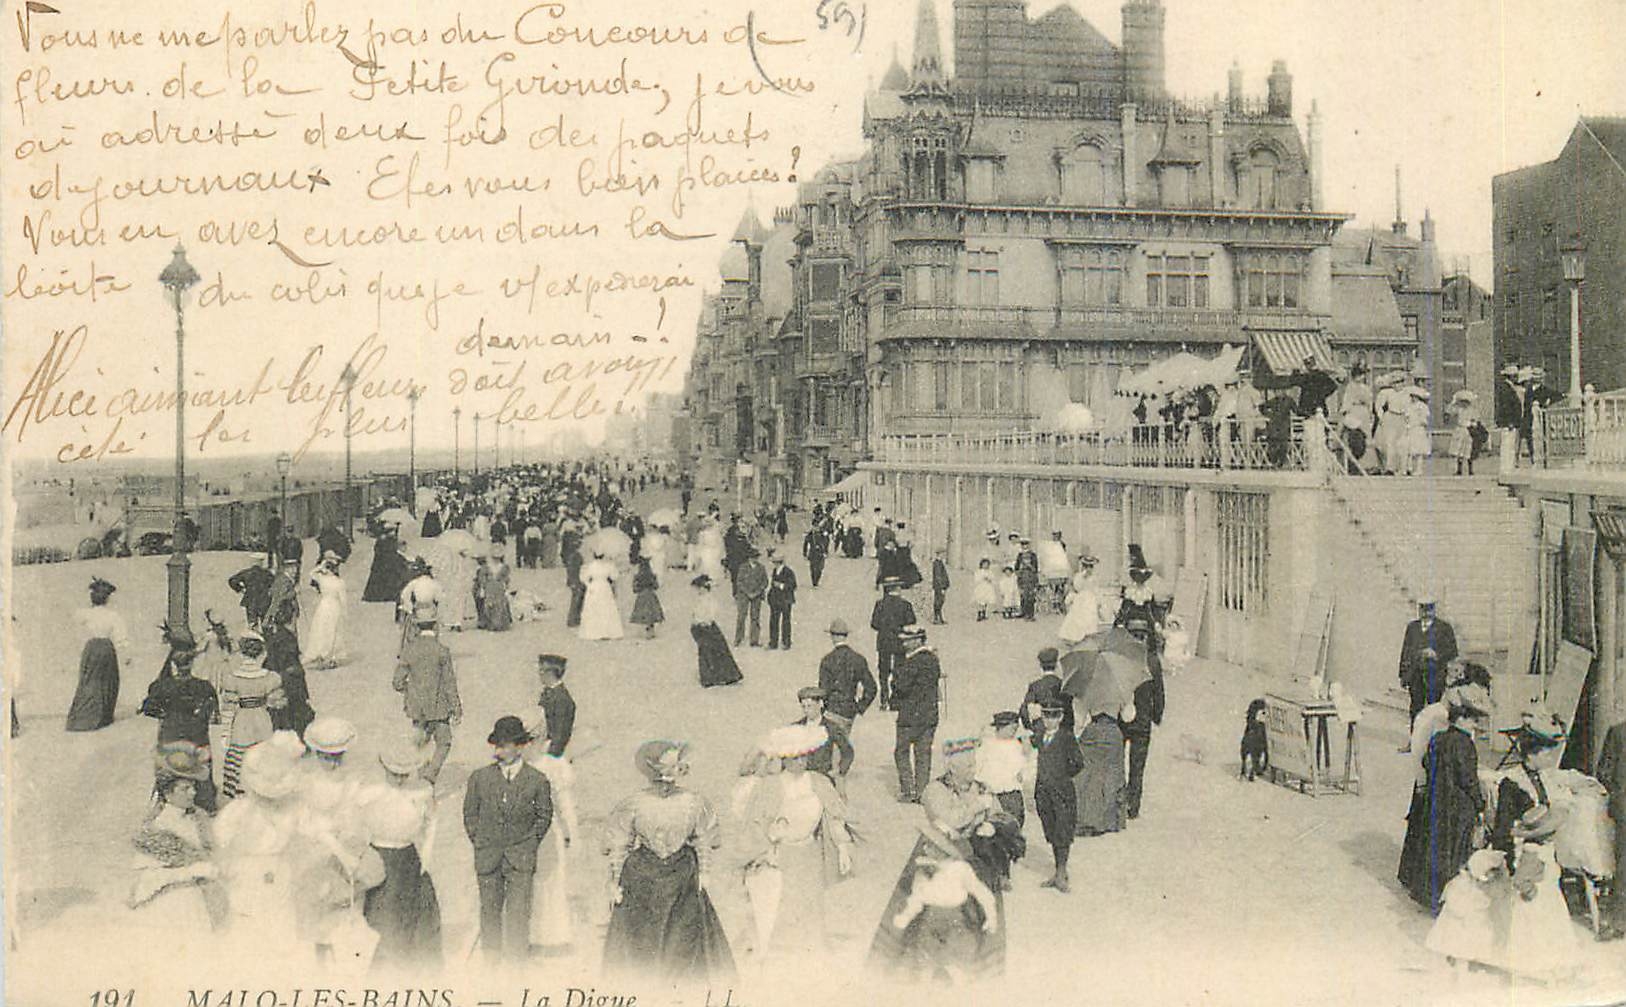 Vous ne me parlez pas du Concours de
fleurs de la Petite Gironde, je vous
ai adressé deux fois des paquets
de journaux Etes vous bien placées?
Vous en avez encore un dans la
boîte du colis que je v/ expédierai
demain -!
Alice aimant les fleurs doit avoir
été les plus belles
59)
191 MALO-LES-BAINS. — La Digue. — LL.